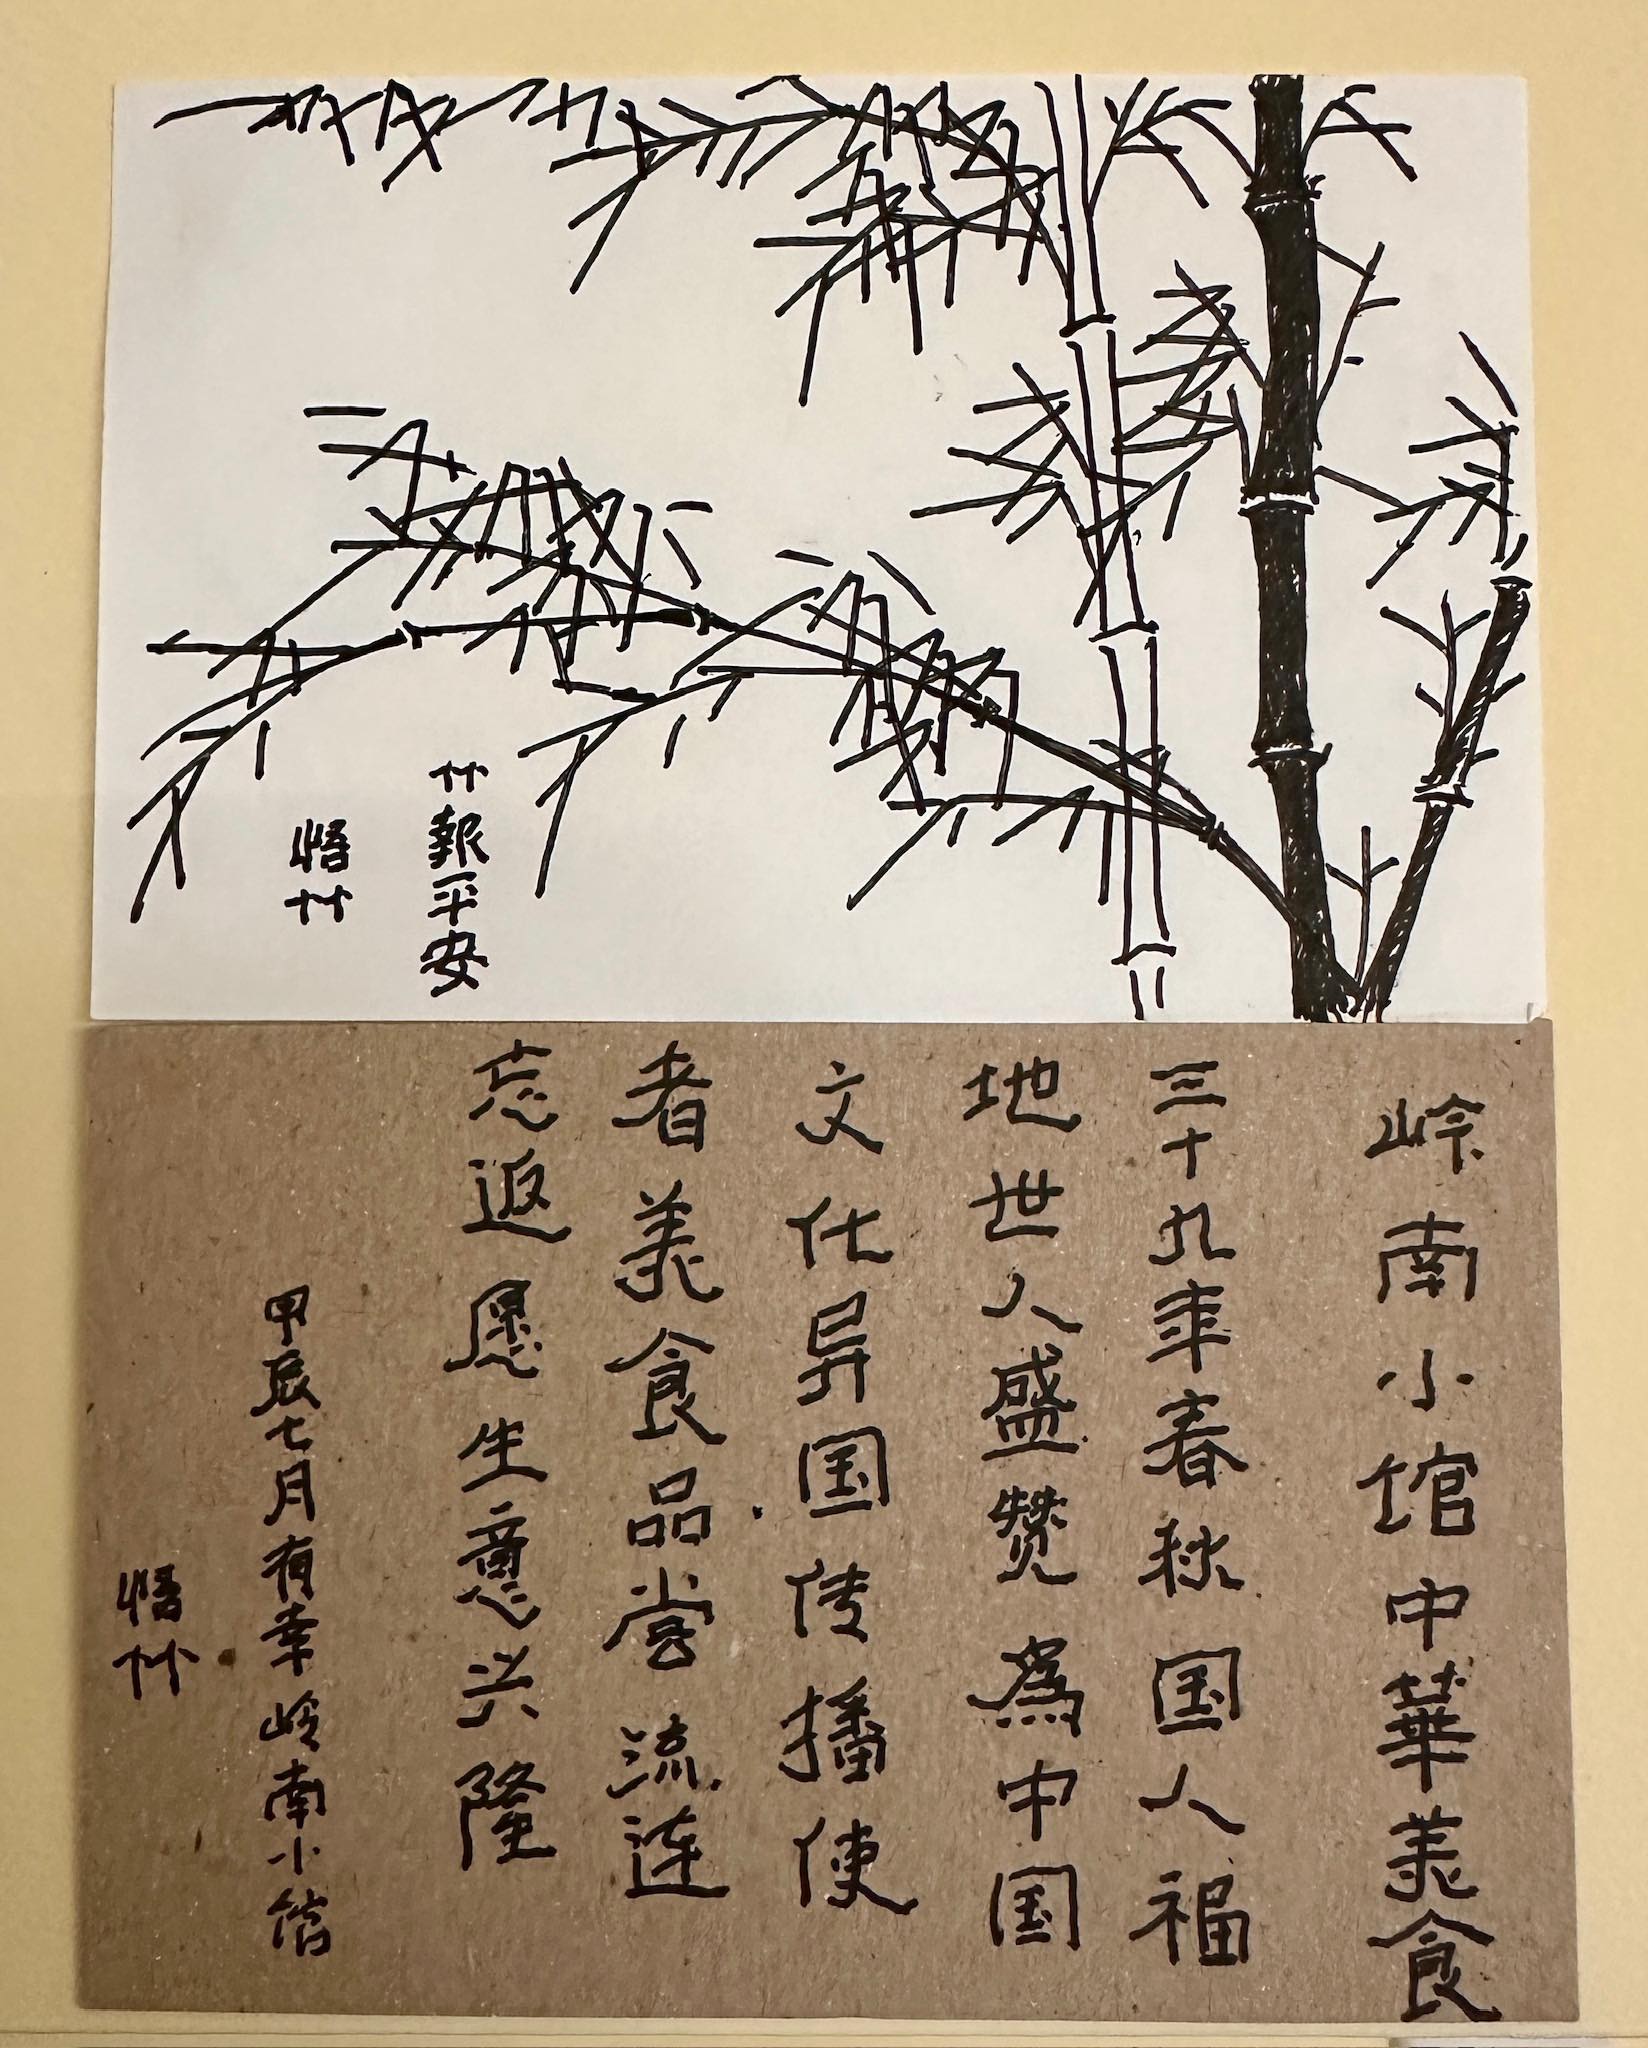 竹報平安
悟竹
岭南小馆中華美食
三十九年春秋国人福
地世人盛赞為中国
文化异国传播使
者美食品尝流连
忘返愿生意兴隆
甲辰七月有幸岭南小馆
悟竹